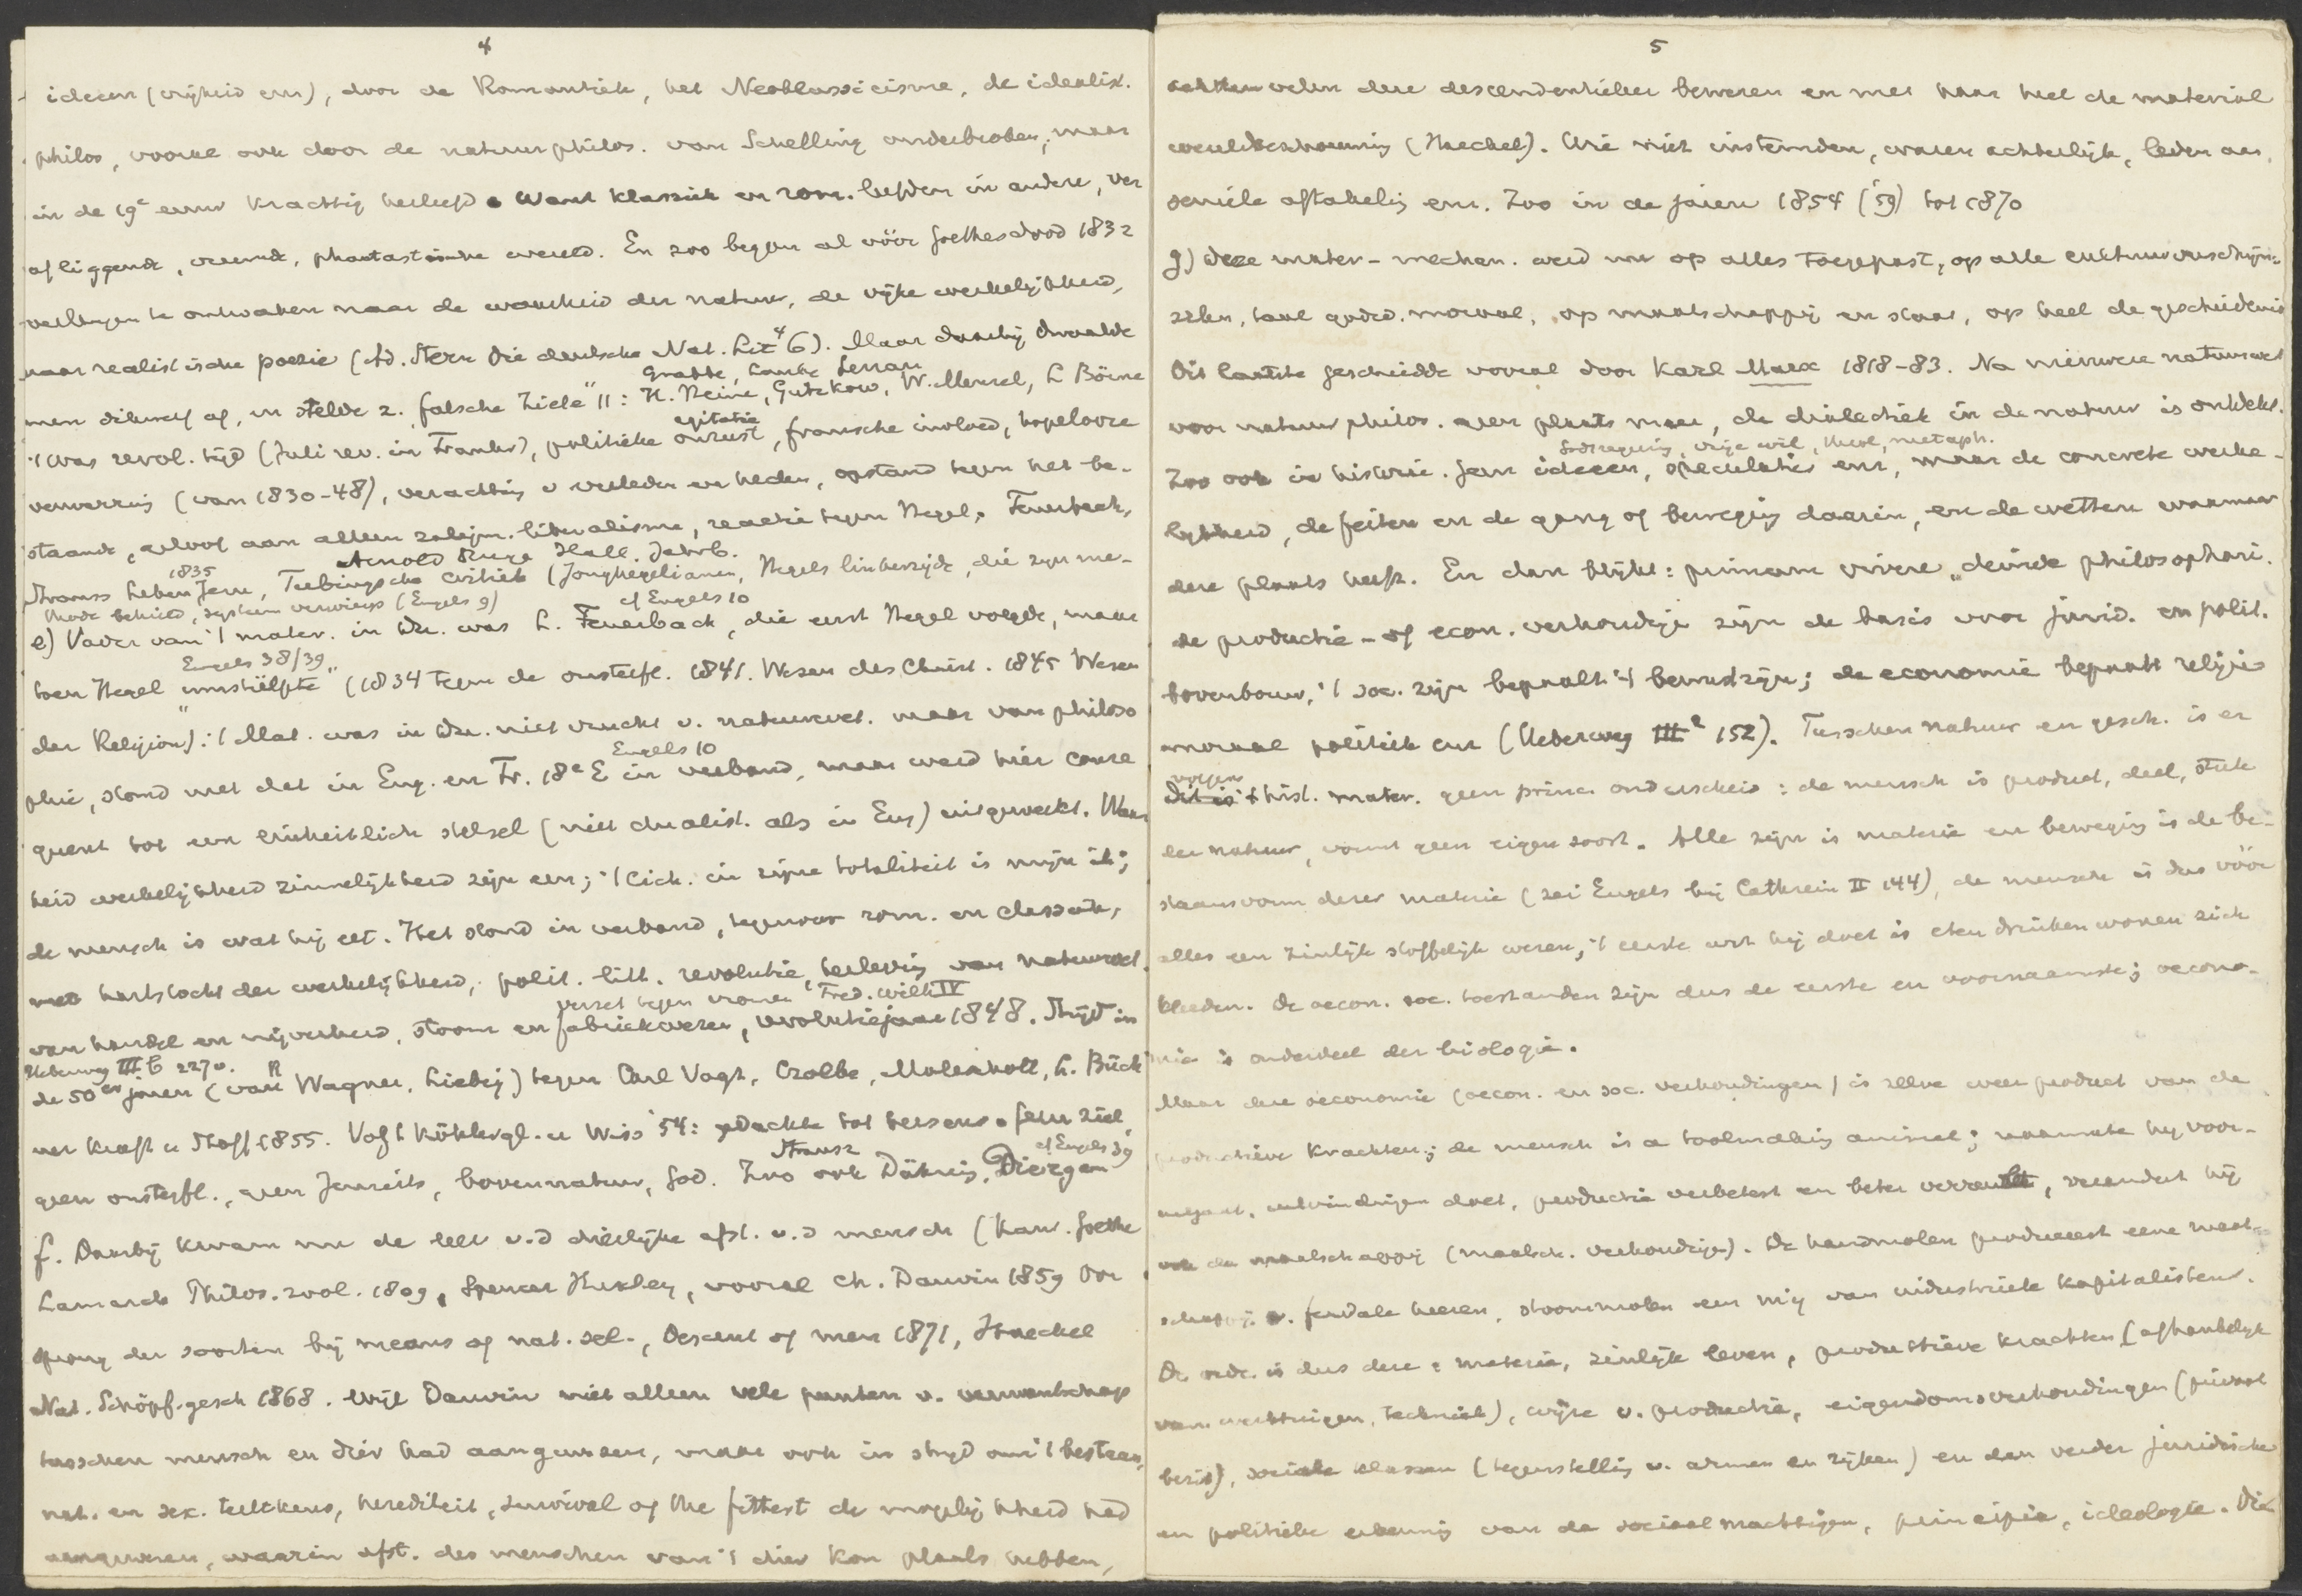 4
ideeen (vrijheid enz), door de Romantiek, het Neoklassicisme, de idealist.
philos, vooral ook door de natuurphilos. van Schelling onderbroken, maar
in de 19e eeuw krachtig herleefd. Want klassiek en rom. leefden in andere, ver
afliggende, vreemde, phantastische wereld. En zoo begon al vóór Goethes dood 1832
verlangen te ontwaken naar de waarheid der natuur, de rijke werkelijkheid,
naar realistische poezie (Ad. Stern Die deutsche Nat. Lit 4 6). Maar daarbij dwaalde
Grabbe, Laube Lenau
men dikwerf af, en stelde z. falsche Ziele" 11: H. Heine, Gutzkow, W. Menzel, L Börne
agitatie
't was revol. tijd (Juli rev. in Frankr), politieke onrust, fransche invloed, hopelooze
verwarring (van 1830-48), verachting v verleden en heden, opstand tegen het be-
staande, geloof aan alleen zaligm. liberalisme, reactie tegen Hegel, Feuerbach,
Arnold Ruge Hall. Jahrb.
1835
Strauss Leben Jesu, Tubingsche critiek (Jonghegelianen, Hegels linkerzijde, die zijn me-
thode behield, systeem verwierp (Engels 9)
cf Engels 10
e) Vader van 't mater. in Du. was L. Feuerbach, die eerst Hegel volgde, maar
Engels 38/39
toen Hegel "umstülpte" (1834 tegen de onsterfl. 1841. Wesen des Christ. 1845 Wesen
der Religion): 't Mat. was in Du. niet vrucht v. natuurwet. maar van philoso
Engels 10
phie, stond met dat in Eng. en Fr. 18e E in verband, maar werd hier conse
quent tot een einheitlich stelsel (niet dualist. als in Eng) uitgewerkt. Waar
heid werkelijkheid zinnelijkheid zijn een; 't lich. in zijne totaliteit is mijn ik;
de mensch is wat hij eet. Het stond in verband, tegenover rom. en classiek,
met hartstocht der werkelijkheid, polit. litt. revolutie, herleving van natuurwet.
verzet tegen vromen Fred. Wilh IV
van handel en nijverheid, stoom en fabriekwezen, revolutiejaar 1848. Strijd in
Ueberweg III b 227v.
de 50er jaren (van R Wagner, Liebig) tegen Carl Vogt, Czolbe, Moleschott, L. Büch
ner Kraft u Stoff 1855. Vogt Köhlergl. u Wiss '54: gedachte tot hersens. Geen ziel,
Strausz
cf Engels 39
geen onsterfl., geen Jenseits, bovennatuur, God. Zoo ook Dühring, Dietzgen
f. Daarbij kwam nu de leer v.d dierlijke afst. v.d mensch (Kant. Goethe
Lamarck Philos. zool. 1809, Spencer Huxley, vooral Ch. Darwin 1859 Oor
sprong der soorten bij means of nat. sel., Descent of men 1871, Haeckel
Nat. Schöpf. gesch 1868. Wijl Darwin niet alleen vele punten v. verwantschap
tusschen mensch en dier had aangewezen, maar ook in strijd om 't bestaan,
nat. en sex. teeltkeus, herediteit, survival of the fittest de mogelijkheid had
aangewezen, waarin afst. des menschen van 't dier kon plaats hebben,
5
achtten velen deze descendentieleer bewezen en met haar heel de material
wereldbeschouwing (Haeckel). Wie niet instemden, waren achterlijk, leden aan
seniele aftakeling enz. Zoo in de jaren 1854 ('59) tot 1870
g) Deze mater-mechan. werd nu op alles toegepast, op alle cultuurverschijn-
selen, taal godsd. moraal, op maatschappij en staat, op heel de geschiedenis
Dit laatste geschiedde vooral door Karl Marx 1818-83. Na nieuwere natuurwet
voor natuurphilos. geen plaats meer, de dialectiek in de natuur is ontdekt.
Godsregering, vrije wil, theol, metaph.
Zoo ook in historie. Geen ideeen, speculatie enz, maar de concrete werke-
lijkheid, de feiten en de gang of beweging daarin, en de wetten waarnaar
deze plaats heeft. En dan blijkt: primum vivere, deinde philosophari.
de productie- of econ. verhoudingen zijn de basis voor jurid. en polit.
bovenbouw, 't soc. zijn bepaalt 't bewustzijn; de economie bepaalt religie
moraal politiek enz (Ueberweg III 2 152). Tusschen natuur en gesch. is er
volgens
dit is 't hist. mater. geen princ. onderscheid: de mensch is product, deel, stuk
der natuur, vormt geen eigen soort. Alle zijn is materie en beweging is de be-
staansvorm dezer materie (zei Engels bij Cathrein II 144), de mensch is dus vóór
alles een zinlijk stoffelijk wezen; 't eerste wat hij doet is eten drinken wonen zich
kleeden. De oecon. soc. toestanden zijn dus de eerste en voornaamste; oecono-
mie is onderdeel der biologie.
Maar deze oeconomie (oecon. en soc. verhoudingen) is zelve weer product van de
productieve krachten; de mensch is a toolmaking animal; naarmate hij voor-
uitgaat, uitvindingen doet, productie verbetert en beter verruilt, verandert hij
ook de maatschappij (maatsch. verhoudingen). De handmolen produceert eene maat-
schappij v. feudale heeren, stoommolen een mij van industrieele kapitalisten.
De orde is dus deze: materie, zinlijk leven, productieve krachten (afhankelijk
van werktuigen, techniek), wijze v. productie, eigendomsverhoudingen (privaat
bezit), sociale klassen (tegenstelling v. armen en rijken) en dan verder juridische
en politieke erkenning van de sociaal machtigen, principia, ideologie. Die